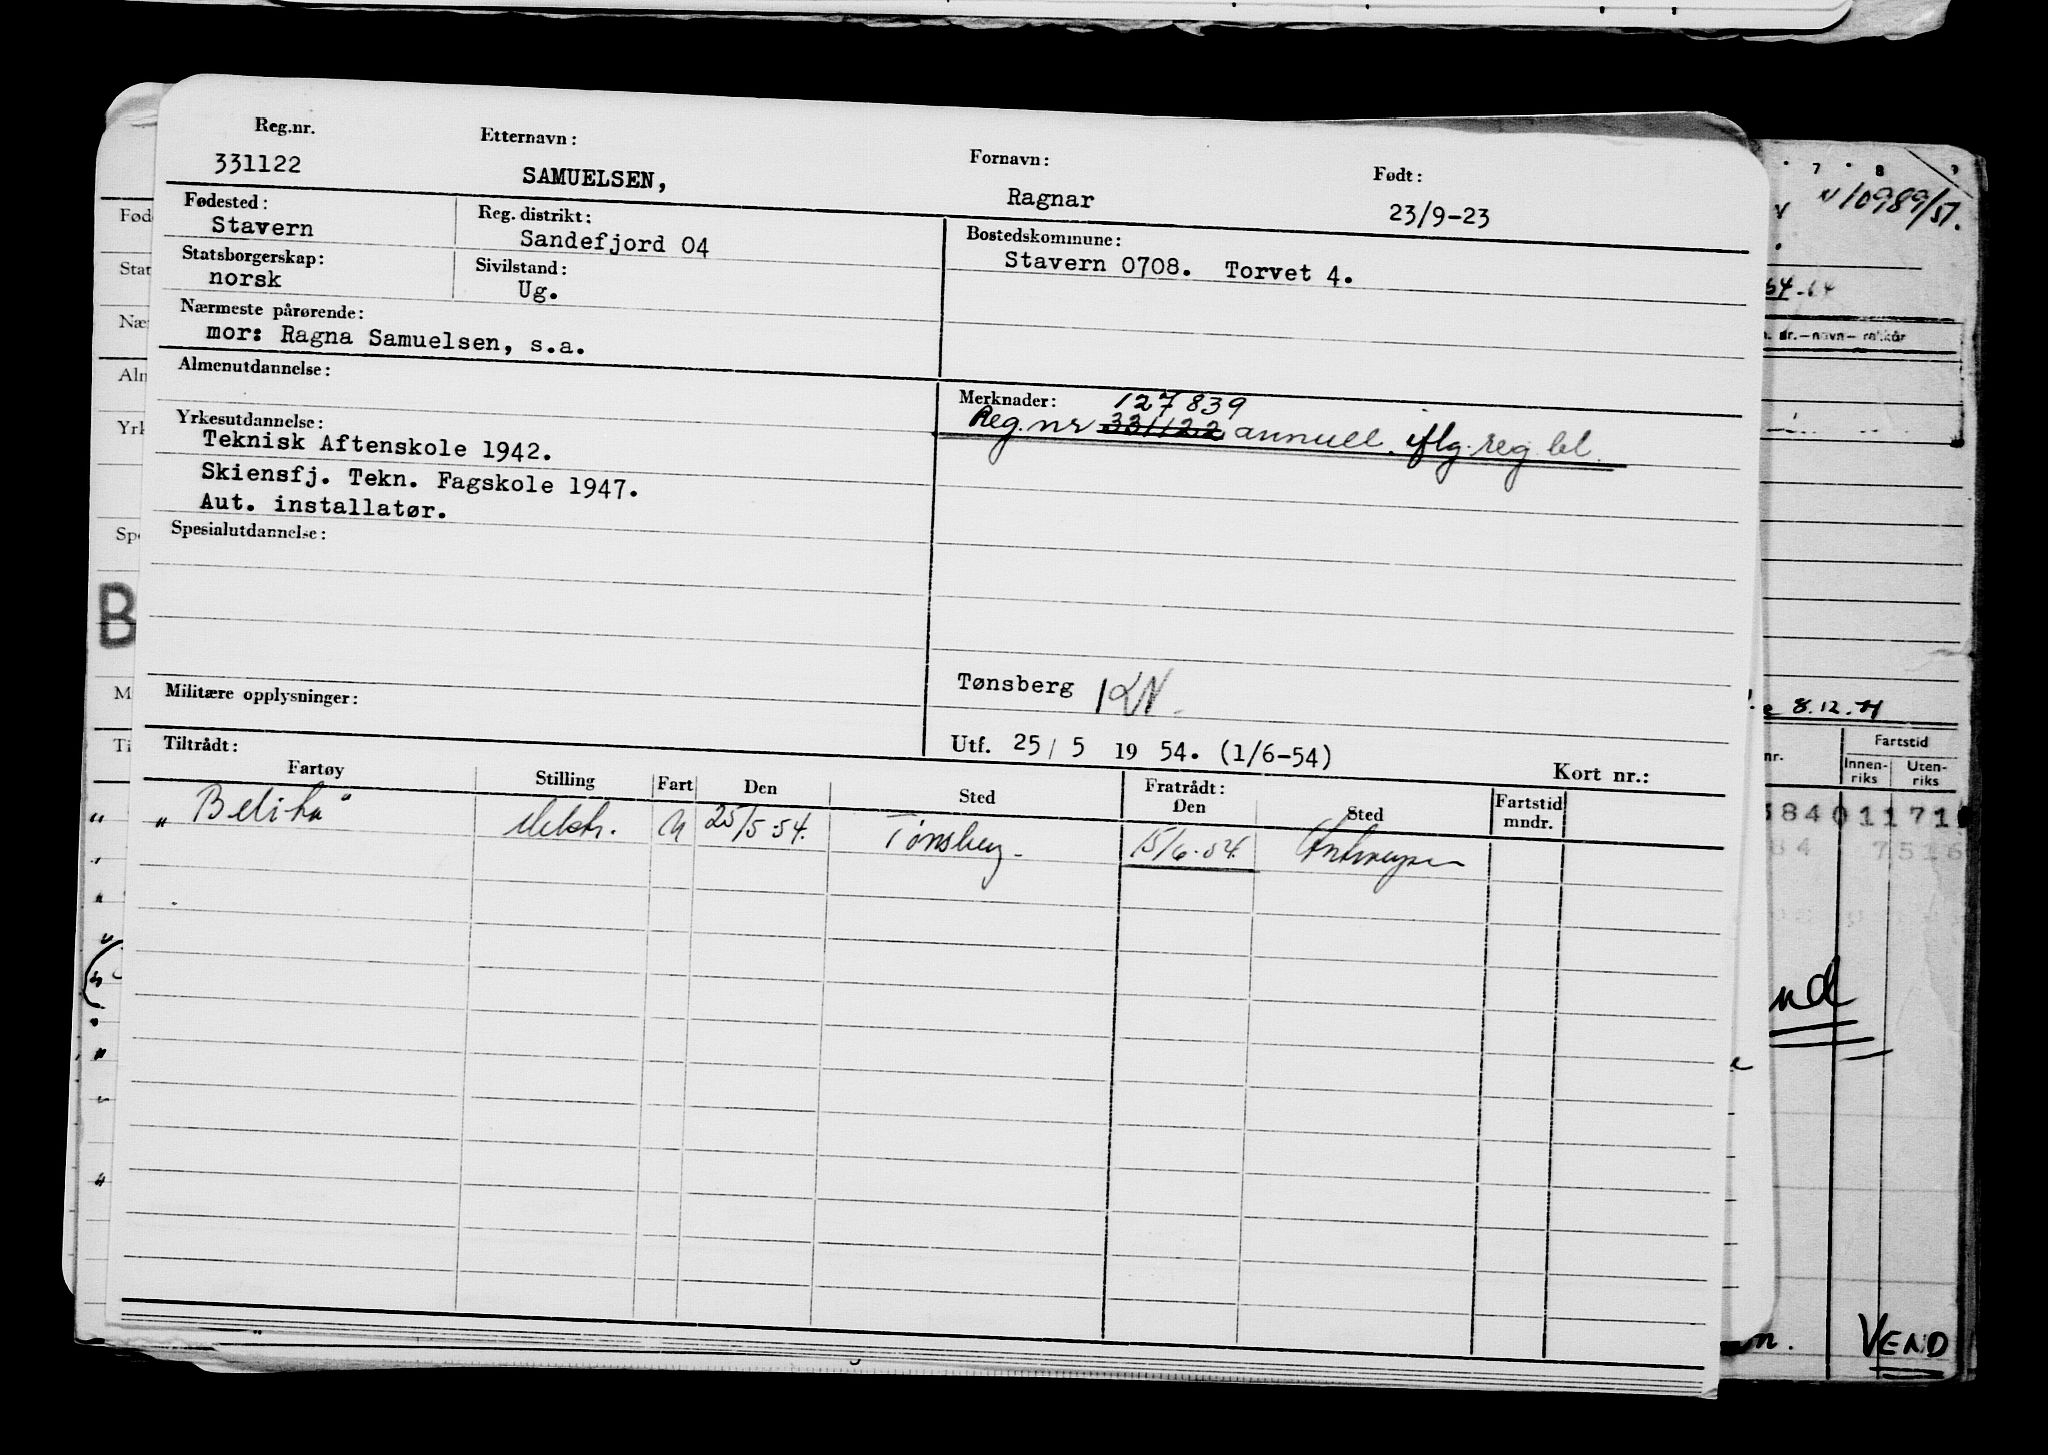 Reg.nr. Etternavn: Fornavn: Født:
331122 SAMUELSEN, Ragnar 23/9-23
Fødested: Reg. distrikt: Bostedskommune:
Stavern Sandefjord 04 Stavern 0708. Torvet 4.
Statsborgerskap: Sivilstand:
norsk Ug.
Nærmeste pårørende:
mor: Ragna Samuelsen, s.a.
Almenutdannelse:
Merknader: 127839
Reg. nr 331122 annull. iflg. reg. bl.
Yrkesutdannelse:
Teknisk Aftenskole 1942.
Skiensfj. Tekn. Fagskole 1947.
Aut. installatør.
Spesialutdannelse:
Tønsberg
Militære opplysninger:
Utf. 25/5 1954. (1/6-54)
Kort nr.:
Tiltrådt: Fratrådt:
Fartøy Stilling Fart Den Sted Den Sted Fartstid mndr.
25/5 54. Tønsberg 15/6-54. Antwerpen
7 8 9
N 10989/57.
64-64
nr.—navn—
8.12.71
nr. Fartstid
Innenriks Utenriks
3840 1171
84 7516
nd
VEND
Fød
Stat
Næ
Aln
Yrk
Spe
B
M
Ti